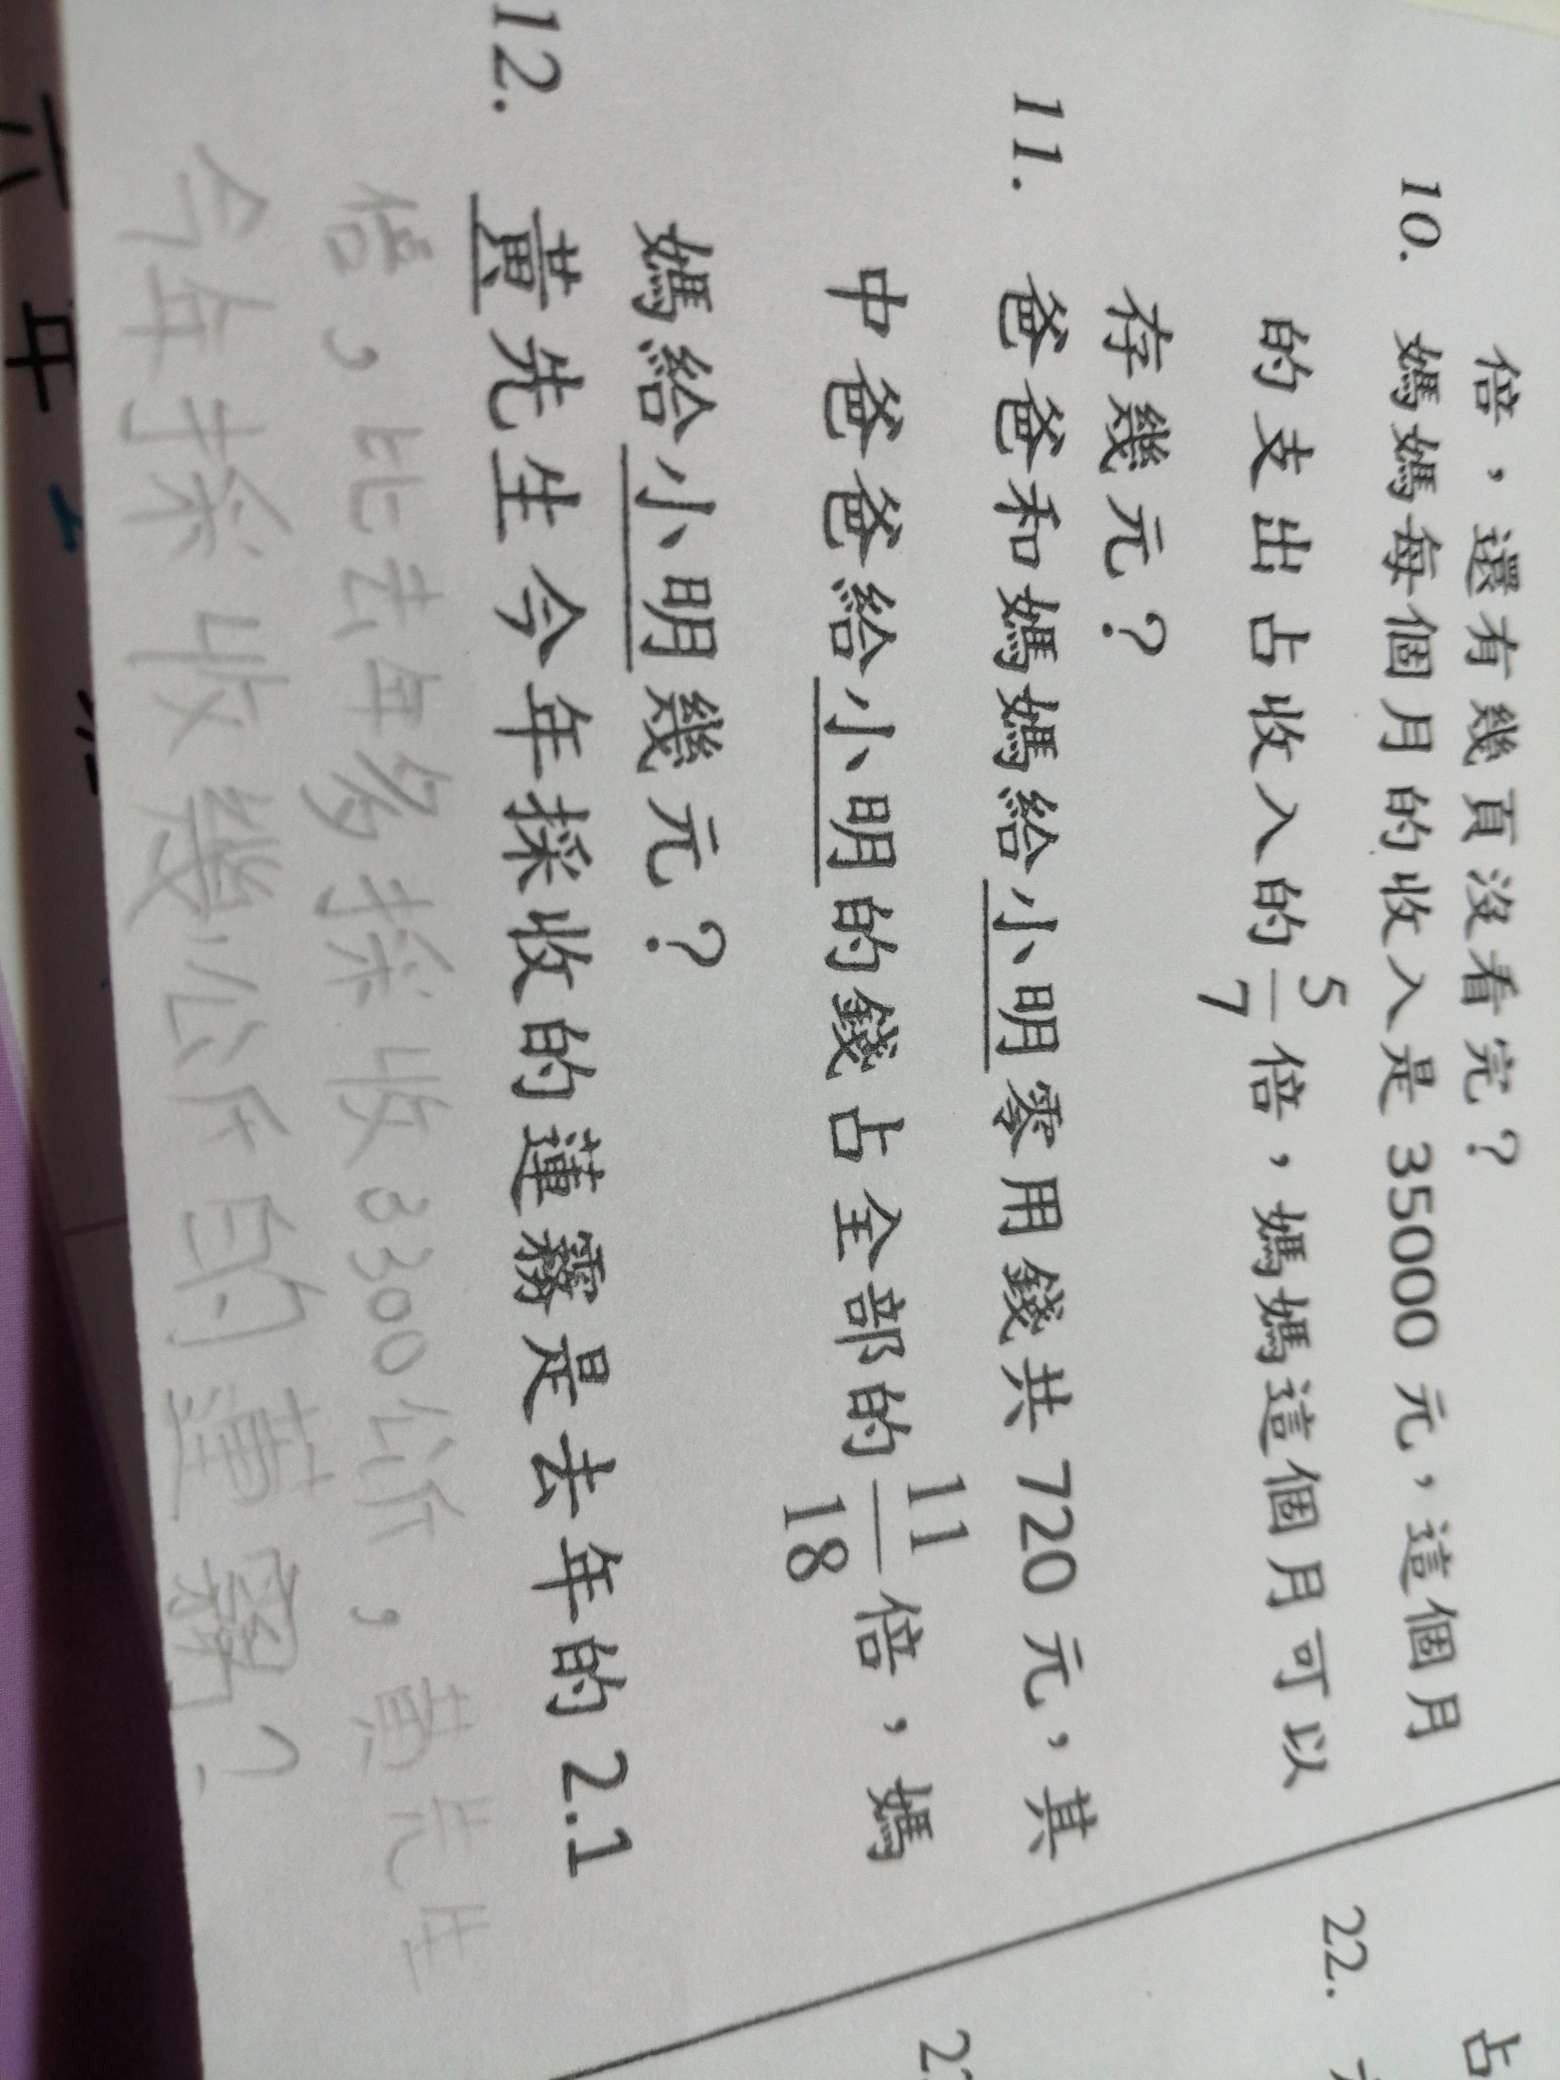 倍，還有幾頁沒看完？
10. 媽媽每個月的收入是 35000 元，這個月
的支出占收入的 5/7 倍，媽媽這個月可以
存幾元？
11. 爸爸和媽媽給小明零用錢共 720 元，其
中爸爸給小明的錢占全部的 11/18 倍，媽
媽給小明幾元？
12. 黃先生今年採收的蓮霧是去年的 2.1
倍，比去年多採收3300公斤，黃先生
今年採收幾公斤的蓮霧？
占
22.
六年